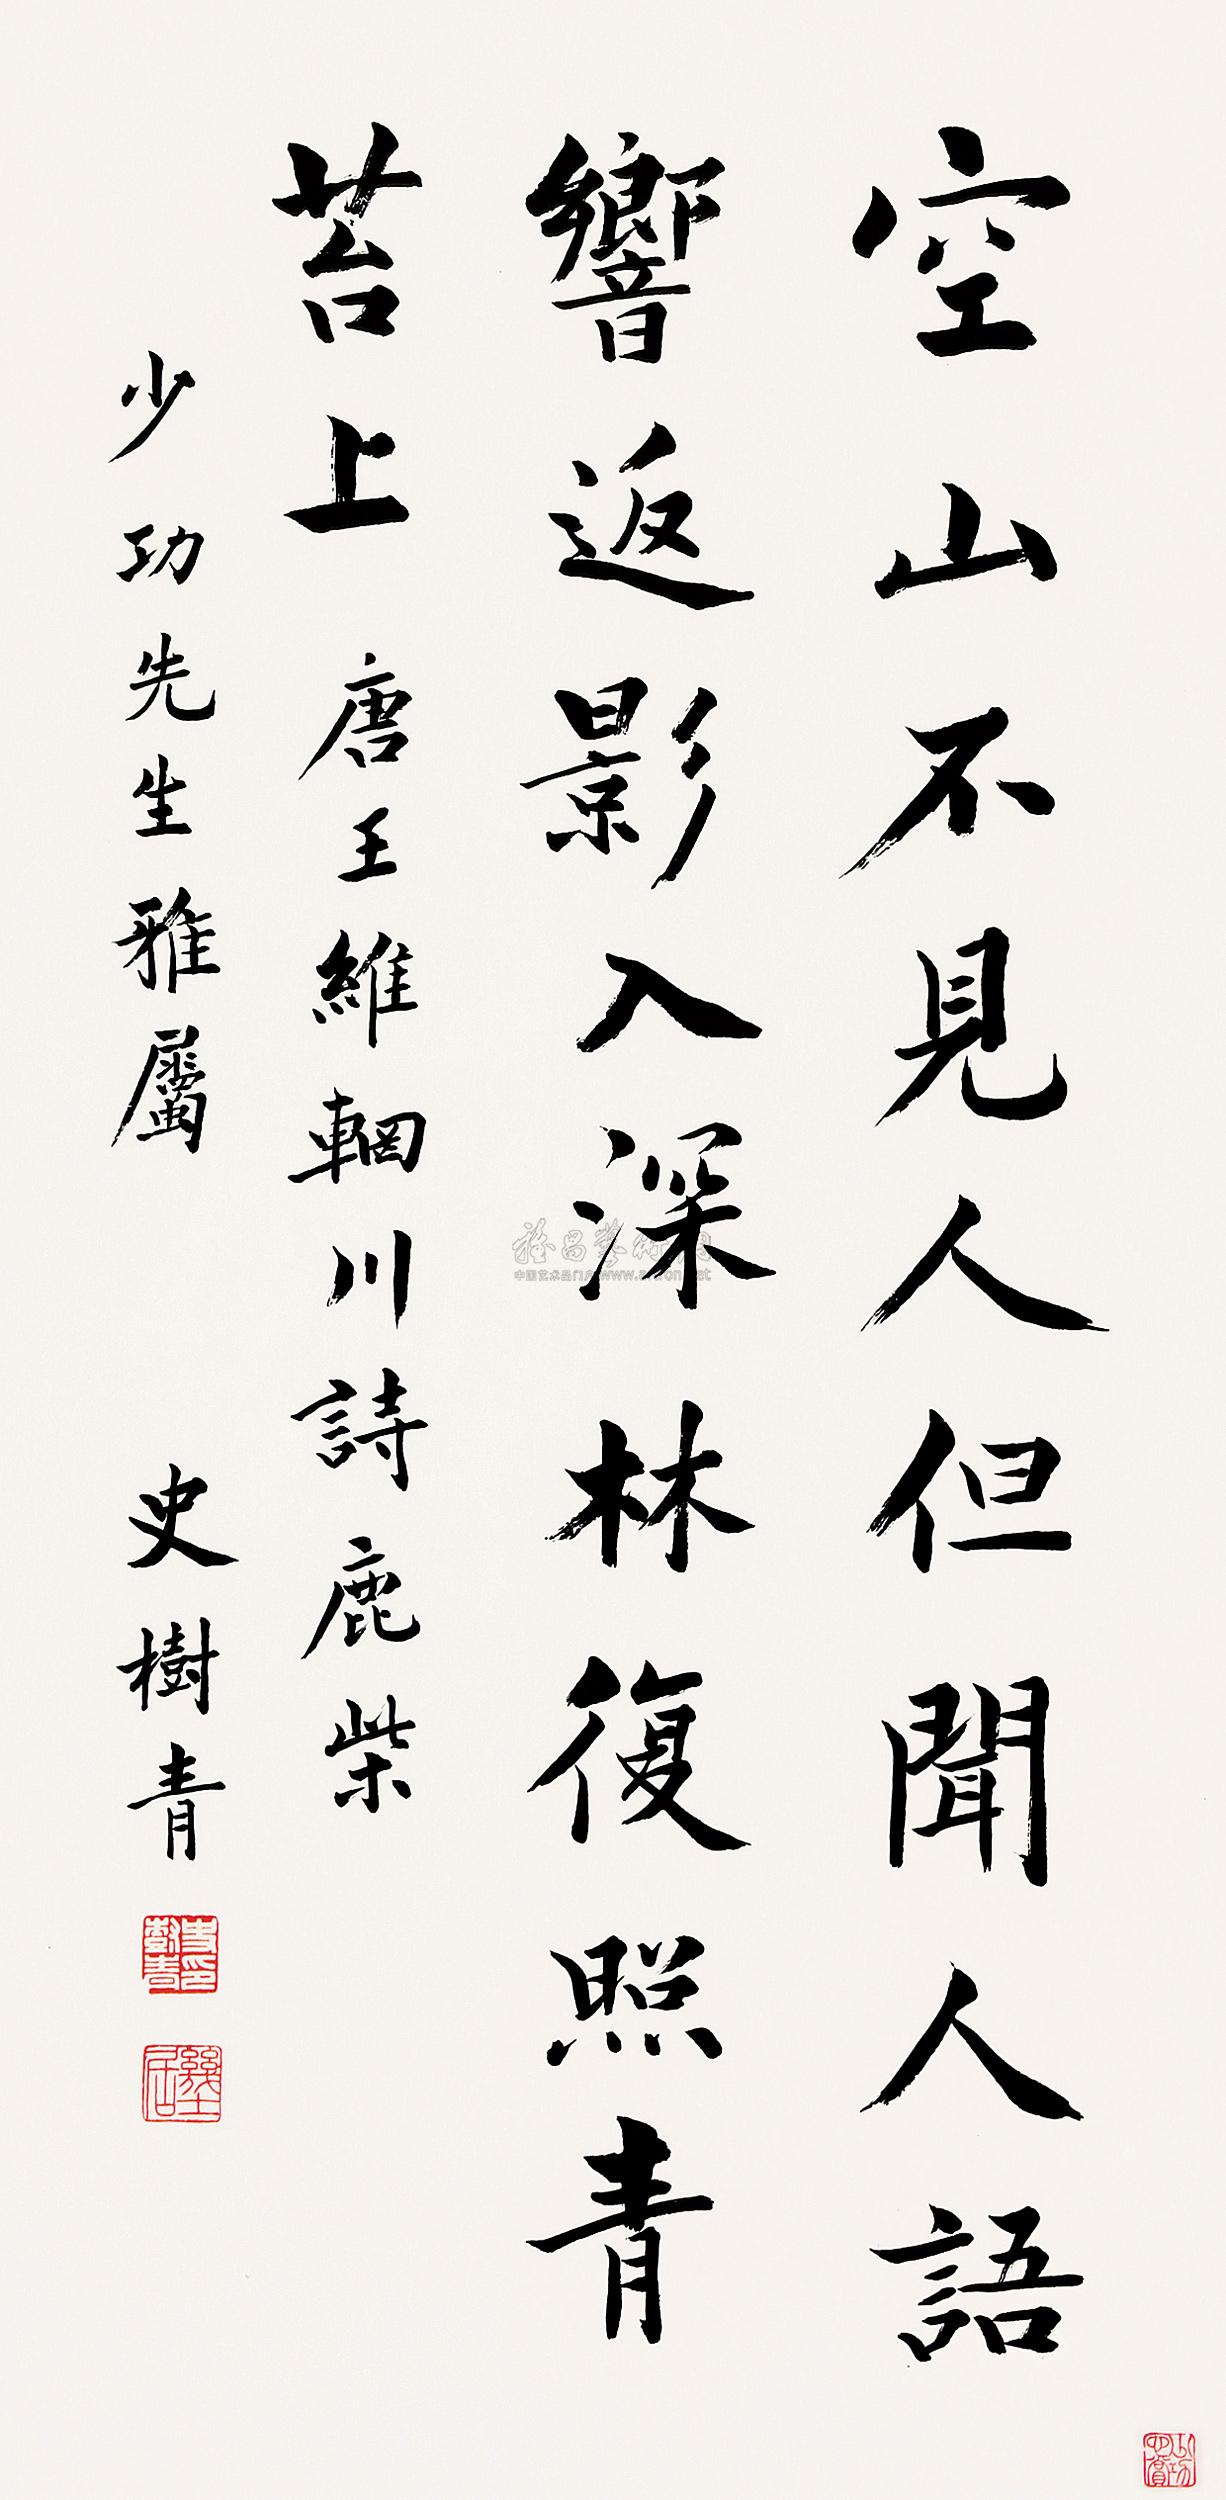 空山不見人但聞人語
響返影入深林復照青
苔上 唐王維輞川詩鹿柴
少功先生雅屬 史樹青